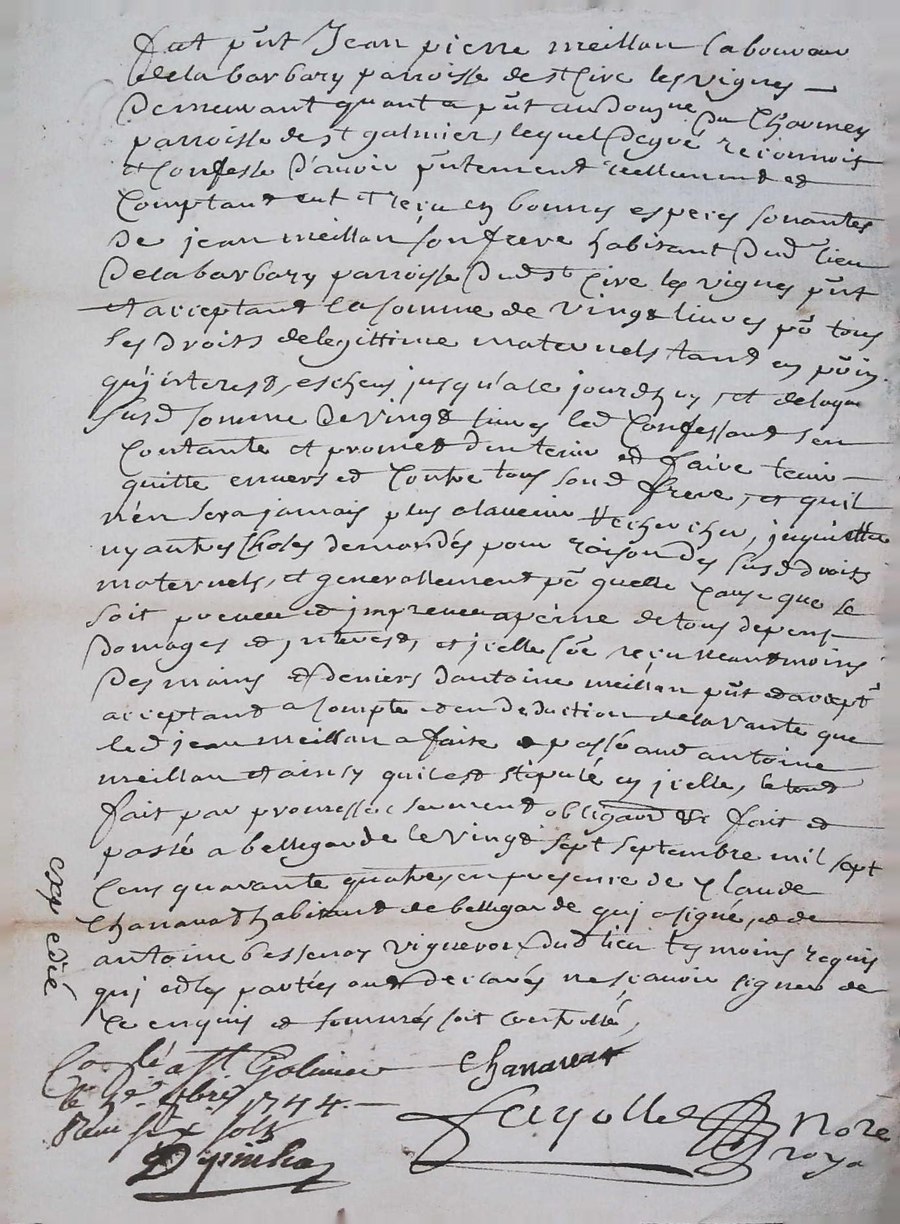 fut pnt Jean pierre meillan laboureur
de la barbary parroisse de st Cire les vignes
Demeurant quant a pnt au Domyne du Charmey
parroisse de st galmier, lequel De gré reconnois
et Confesse D'avoir pntement reellement et
Comptant eut et reçu en bonnes especes sonantes
De jean meillan son frere habitant Dud lieu
De la barbary parroisse Dud st Cire les vignes pnt
et acceptant la somme de vingt livres po tous
les Droits de legittime maternels tant en prin
qu'interest, escheus jusqu'a ce jourdhuy, et de laqu
susd somme De vingt livres led Confessant s'en
Contante et promet d'en tenir et faire tenir
quitte envers et Contre tous sond frere, et quil
n'en sera jamais plus a lavenir rechercher, inquietter
ny autres Choses demandés pour raison des susd droits
maternels, et generallement po quelle Cause que se
soit preveue et impreveue a peine de tous depens
Domages et interest, et icelle soe reçu neantmoins
Des mains et deniers d'antoine meillan pnt et accept
acceptant a Compte et en deduction de la vante que
led jean meillan a faite et passé aud antoine
meillan et ainsy quil est stipulé en icelle, le tout
fait par promesse serment obligaon &c fait et
passé a bellegarde le vingt sept septembre mil sept
Cens quarante quatre en presence de Claude
Chanavat habitant de bellegarde qui a signé, et de
antoine bessenay vigneron dud lieu temoins requis
qui et les parties ont declarés ne scavoir signer de
Ce enquis et sommés soit Controllé,
exp edié
Conlé a St Galmier
le 9bre 1744.
Reçu six sols
Chanavat
Fayolle
Nore
roya